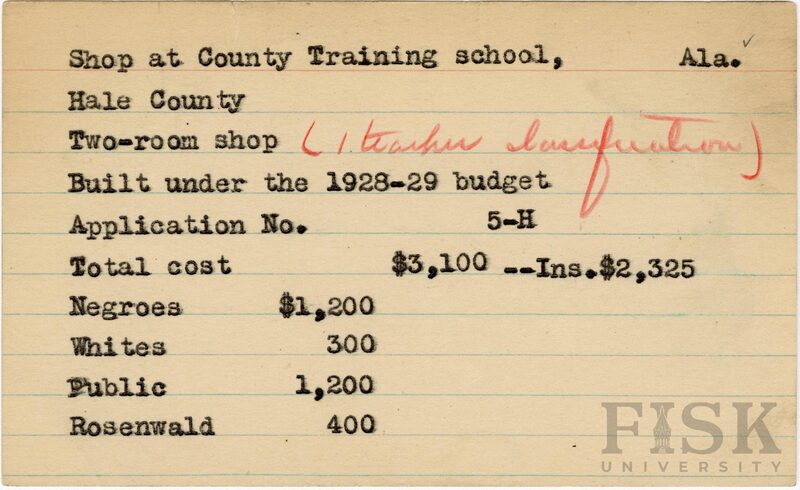 Shop at County Training school, Ala. ✓
Hale County
Two-room shop (1 teacher classification)
Built under the 1928-29 budget
Application No. 5-H
Total cost $3,100 --Ins.$2,325
Negroes $1,200
Whites 300
Public 1,200
Rosenwald 400
FISK
UNIVERSITY